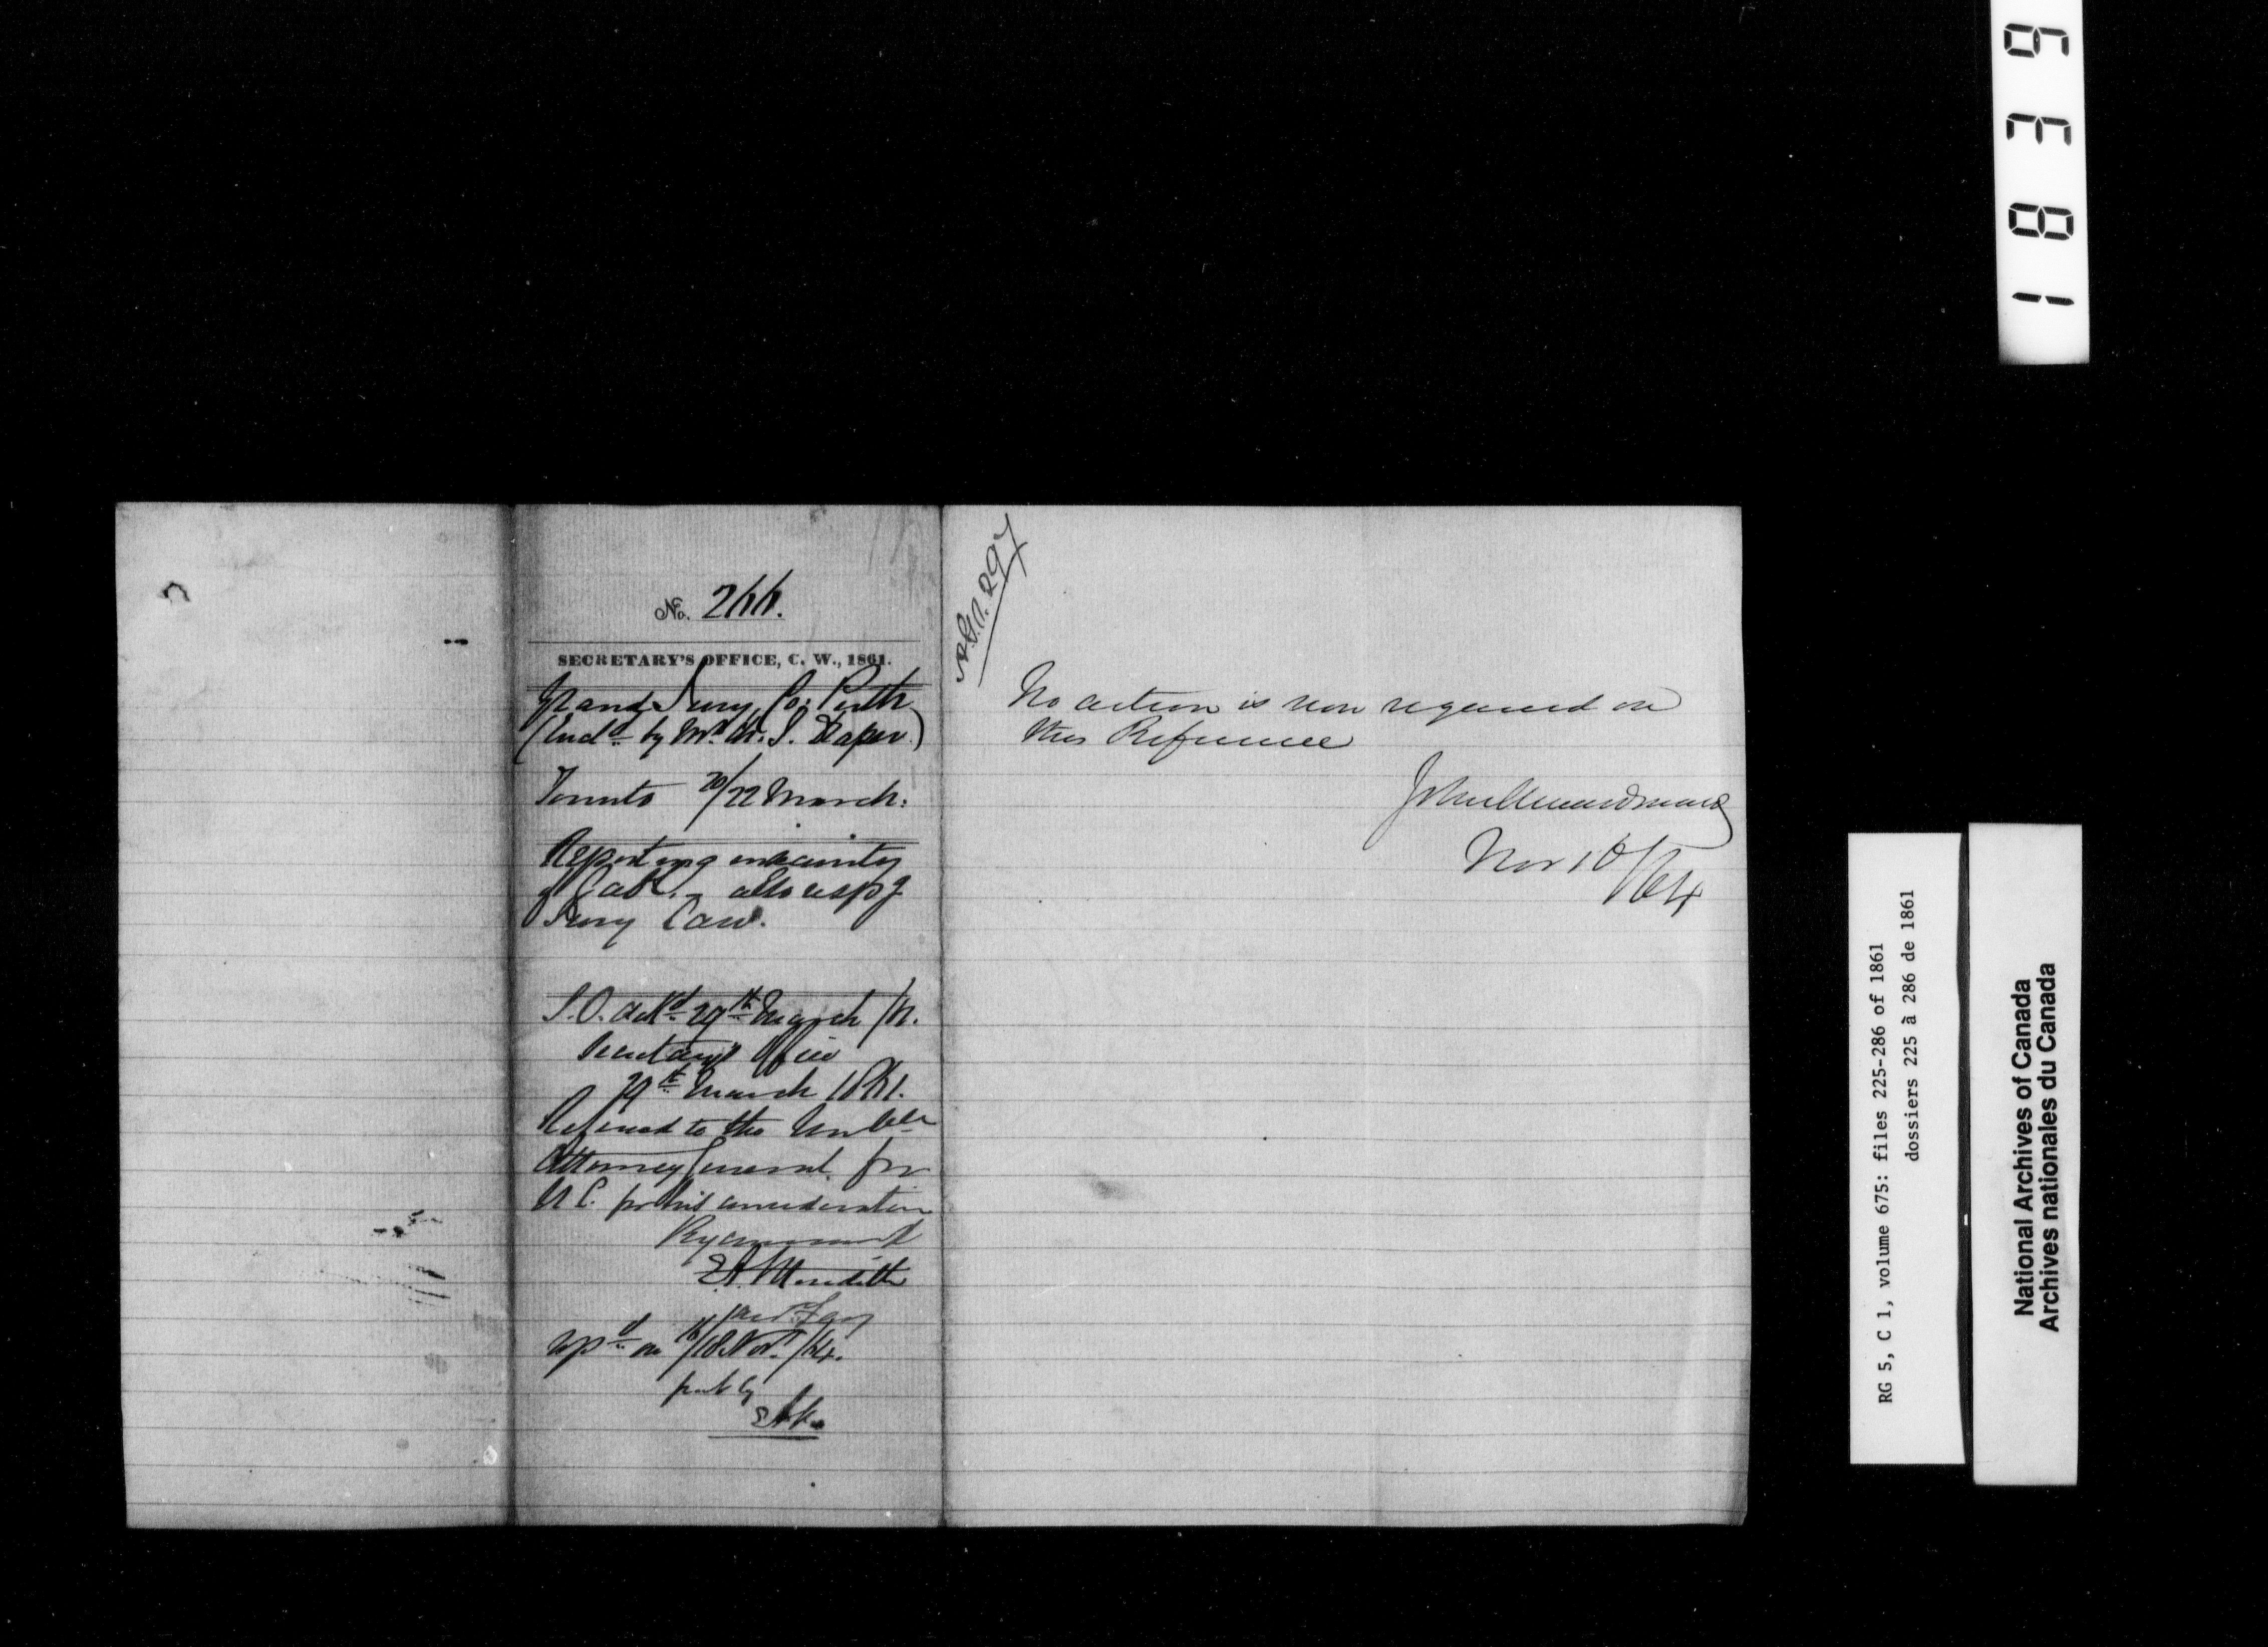 No. 266.
SECRETARY'S OFFICE, C. W., 1861.
Grand Jury Co: Perth
(Encd. by Mr. W. S. Draper.)
Toronto 20/22 March.
Reporting insecurity
of Gaol, - also respg
Jury Law.
S.O. Ackd. 29th March /61.
Secretary's Office
29th March 1861.
Referred to the Honble
Attorney General for
U C. for his consideration
By command
E A Meredith
Asst. Secy
on 16/18 Novr. /64.
put by
A.G.O. 297
No action is now required on
this Reference
Nov 16/64
1 8 3 9
RG 5, C 1, volume 675: files 225-286 of 1861
dossiers 225 à 286 de 1861
National Archives of Canada
Archives nationales du Canada